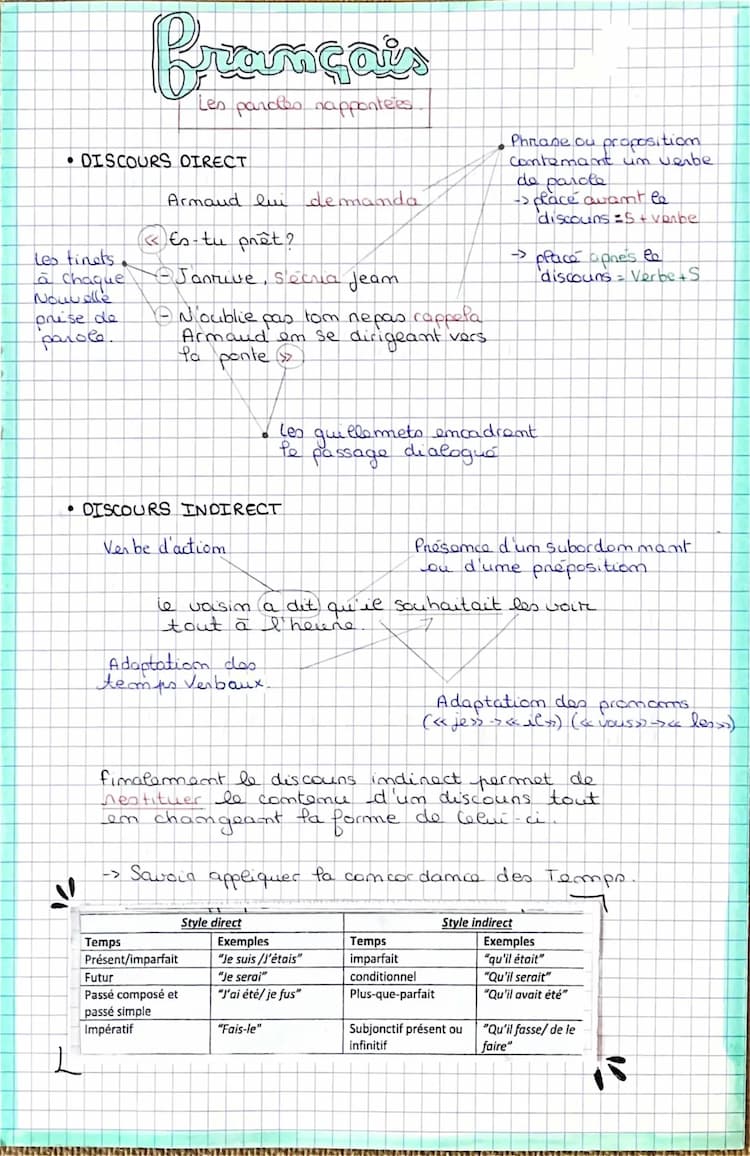 Français
Les paroles rapportées.
• DISCOURS DIRECT
Armaud lui demanda
« Es-tu prêt ?
- J'arrive, s'écria Jean
- N'oublie pas ton repas rappela
Armaud en se dirigeant vers
la porte »
Les tirets
à chaque
Nouvelle
prise de
parole.
Phrase ou proposition
contenant un verbe
de parole
-> placé avant le
discours = S + verbe
-> placé après le
discours = Verbe + S
Les guillemets encadrent
le passage dialogué
• DISCOURS INDIRECT
Verbe d'action
Présence d'un subordonnant
ou d'une préposition
Le voisin a dit qu'il souhaitait les voir
tout à l'heure.
Adaptation des
temps Verbaux.
Adaptation des pronoms
(« je » -> « il ») (« vous » -> « les »)
Finalement le discours indirect permet de
restituer le contenu d'un discours tout
en changeant la forme de celui-ci.
-> Savoir appliquer la concordance des Temps.
Style direct Style indirect
Temps Exemples Temps Exemples
Présent/imparfait "Je suis /J'étais" imparfait "qu'il était"
Futur "Je serai" conditionnel "Qu'il serait"
Passé composé et "J'ai été/ je fus" Plus-que-parfait "Qu'il avait été"
passé simple
Impératif "Fais-le" Subjonctif présent ou "Qu'il fasse/ de le
infinitif faire"